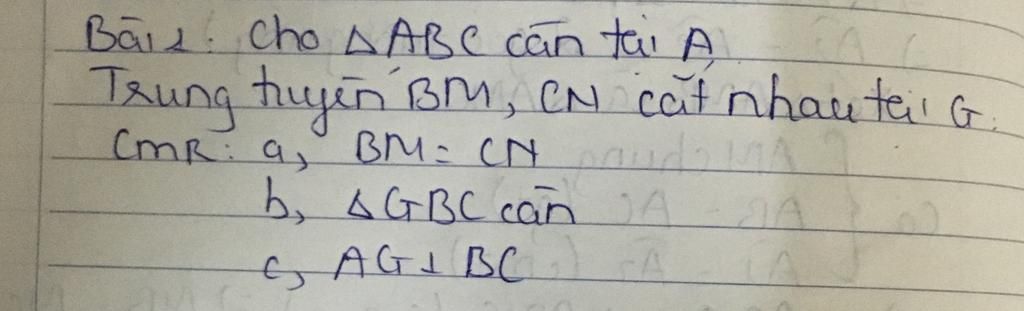 Bài 1: Cho △ABC cân tại A
Trung tuyến BM, CN cắt nhau tại G.
CMR: a, BM = CN
b, △GBC cân
c, AG ⊥ BC